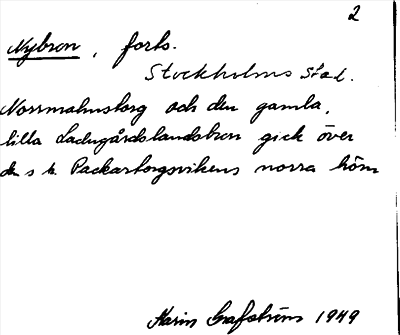 2
Nybron, forts.
Stockholms stad.
Norrmalmstorg och den gamla,
lilla Ladugårdslandsbron gick över
den s k. Packartorgsvikens norra hörn
Karin Grafström 1949